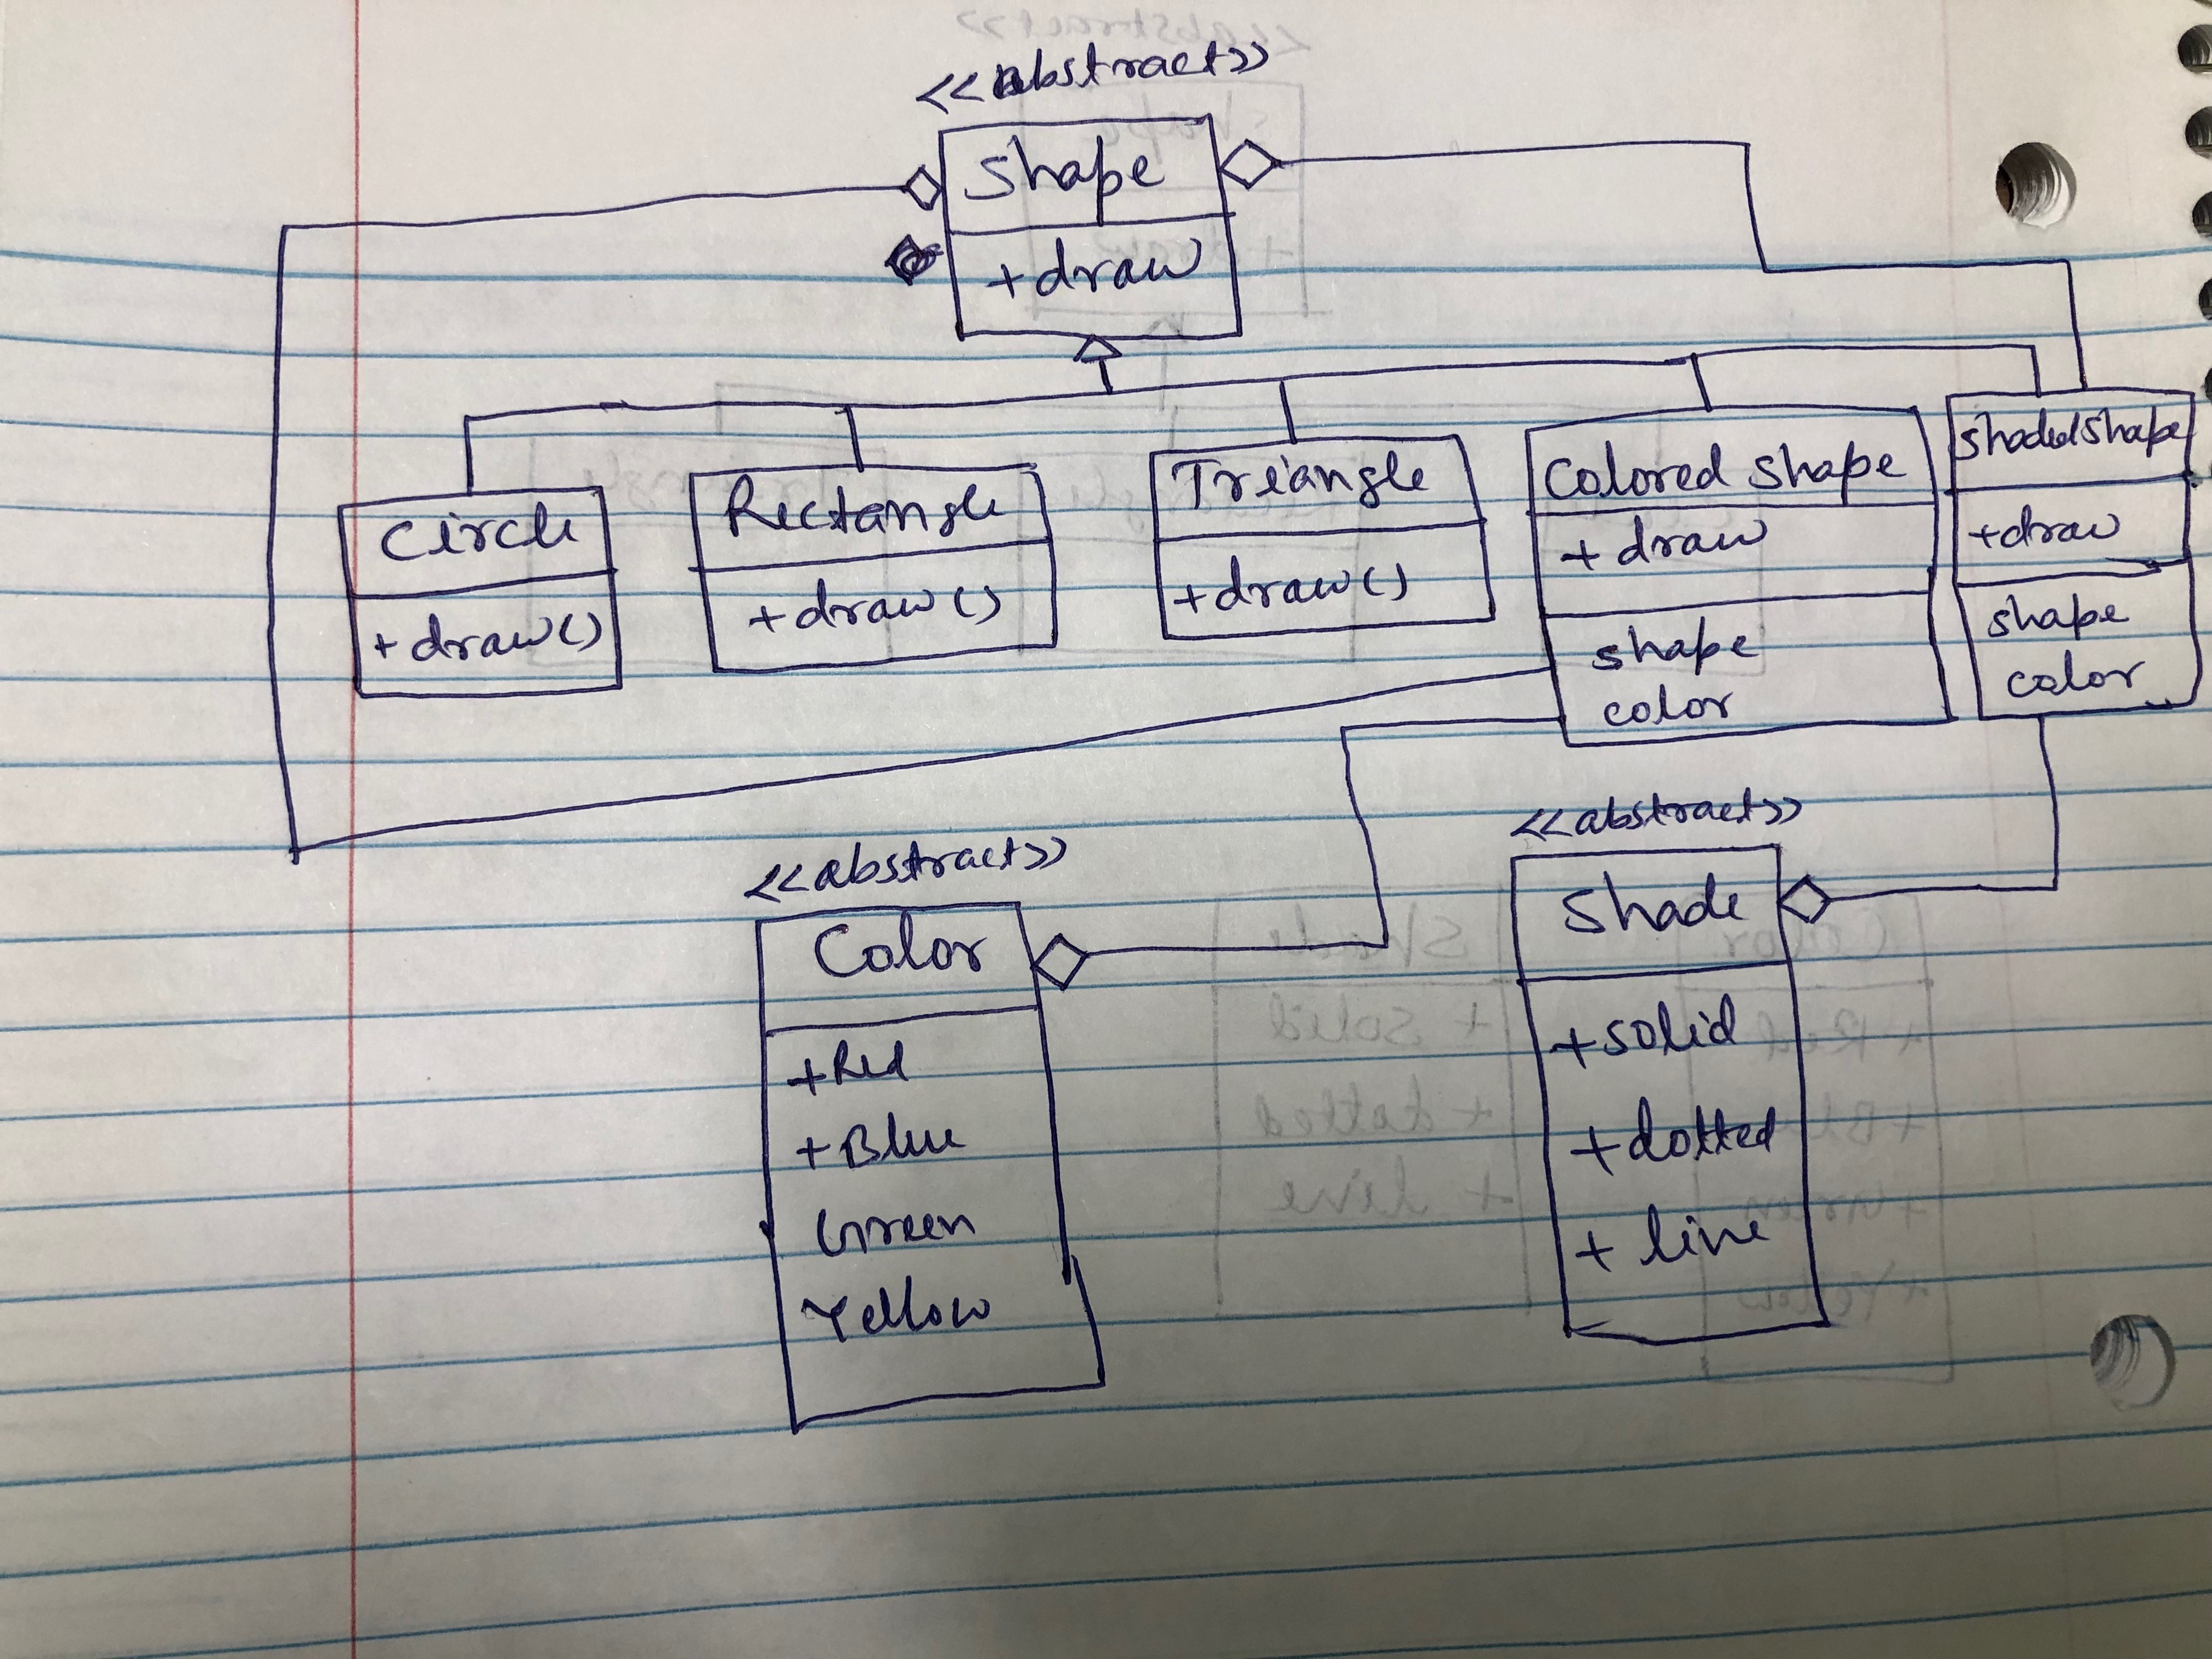 <<abstract>>
Shape
+draw
Circle
+draw()
Rectangle
+draw()
Triangle
+draw()
Colored Shape
+ draw
shape
color
ShadedShape
+draw
shape
color
<<abstract>>
Color
+Red
+Blue
Green
Yellow
<<abstract>>
Shade
+solid
+dotted
+ line